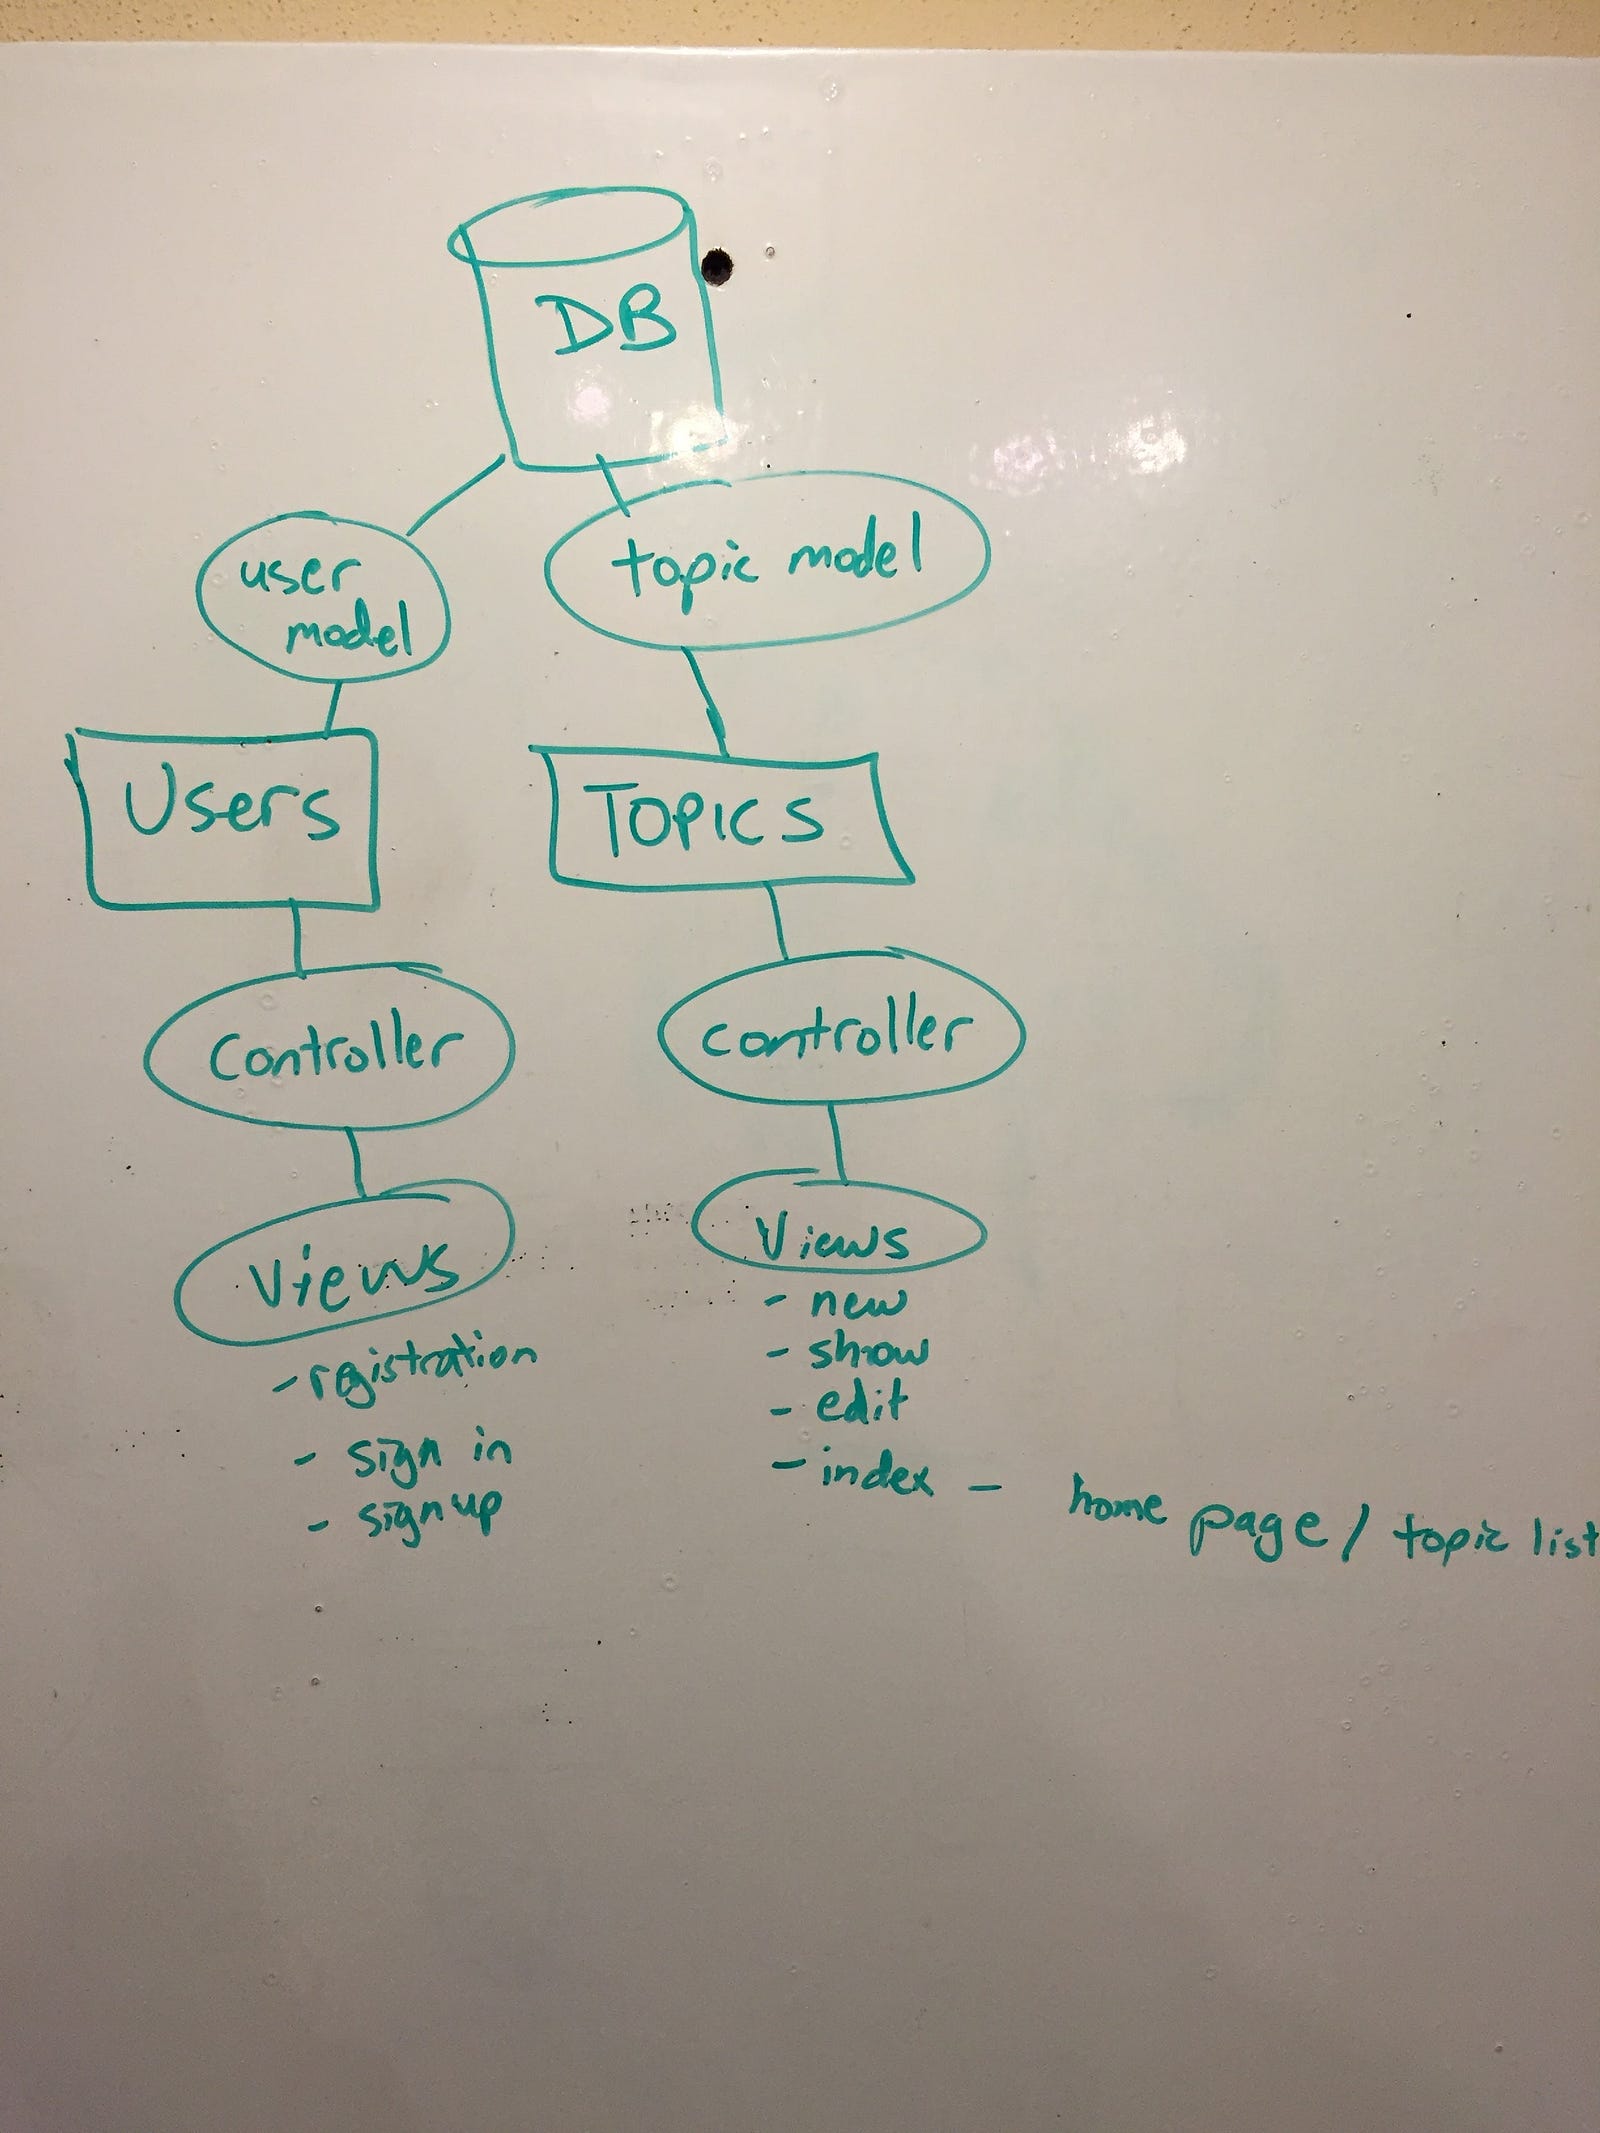 DB
user
model
topic model
Users
TOPICS
Controller
controller
Views
- registration
- sign in
- signup
Views
- new
- show
- edit
- index - home page / topic list